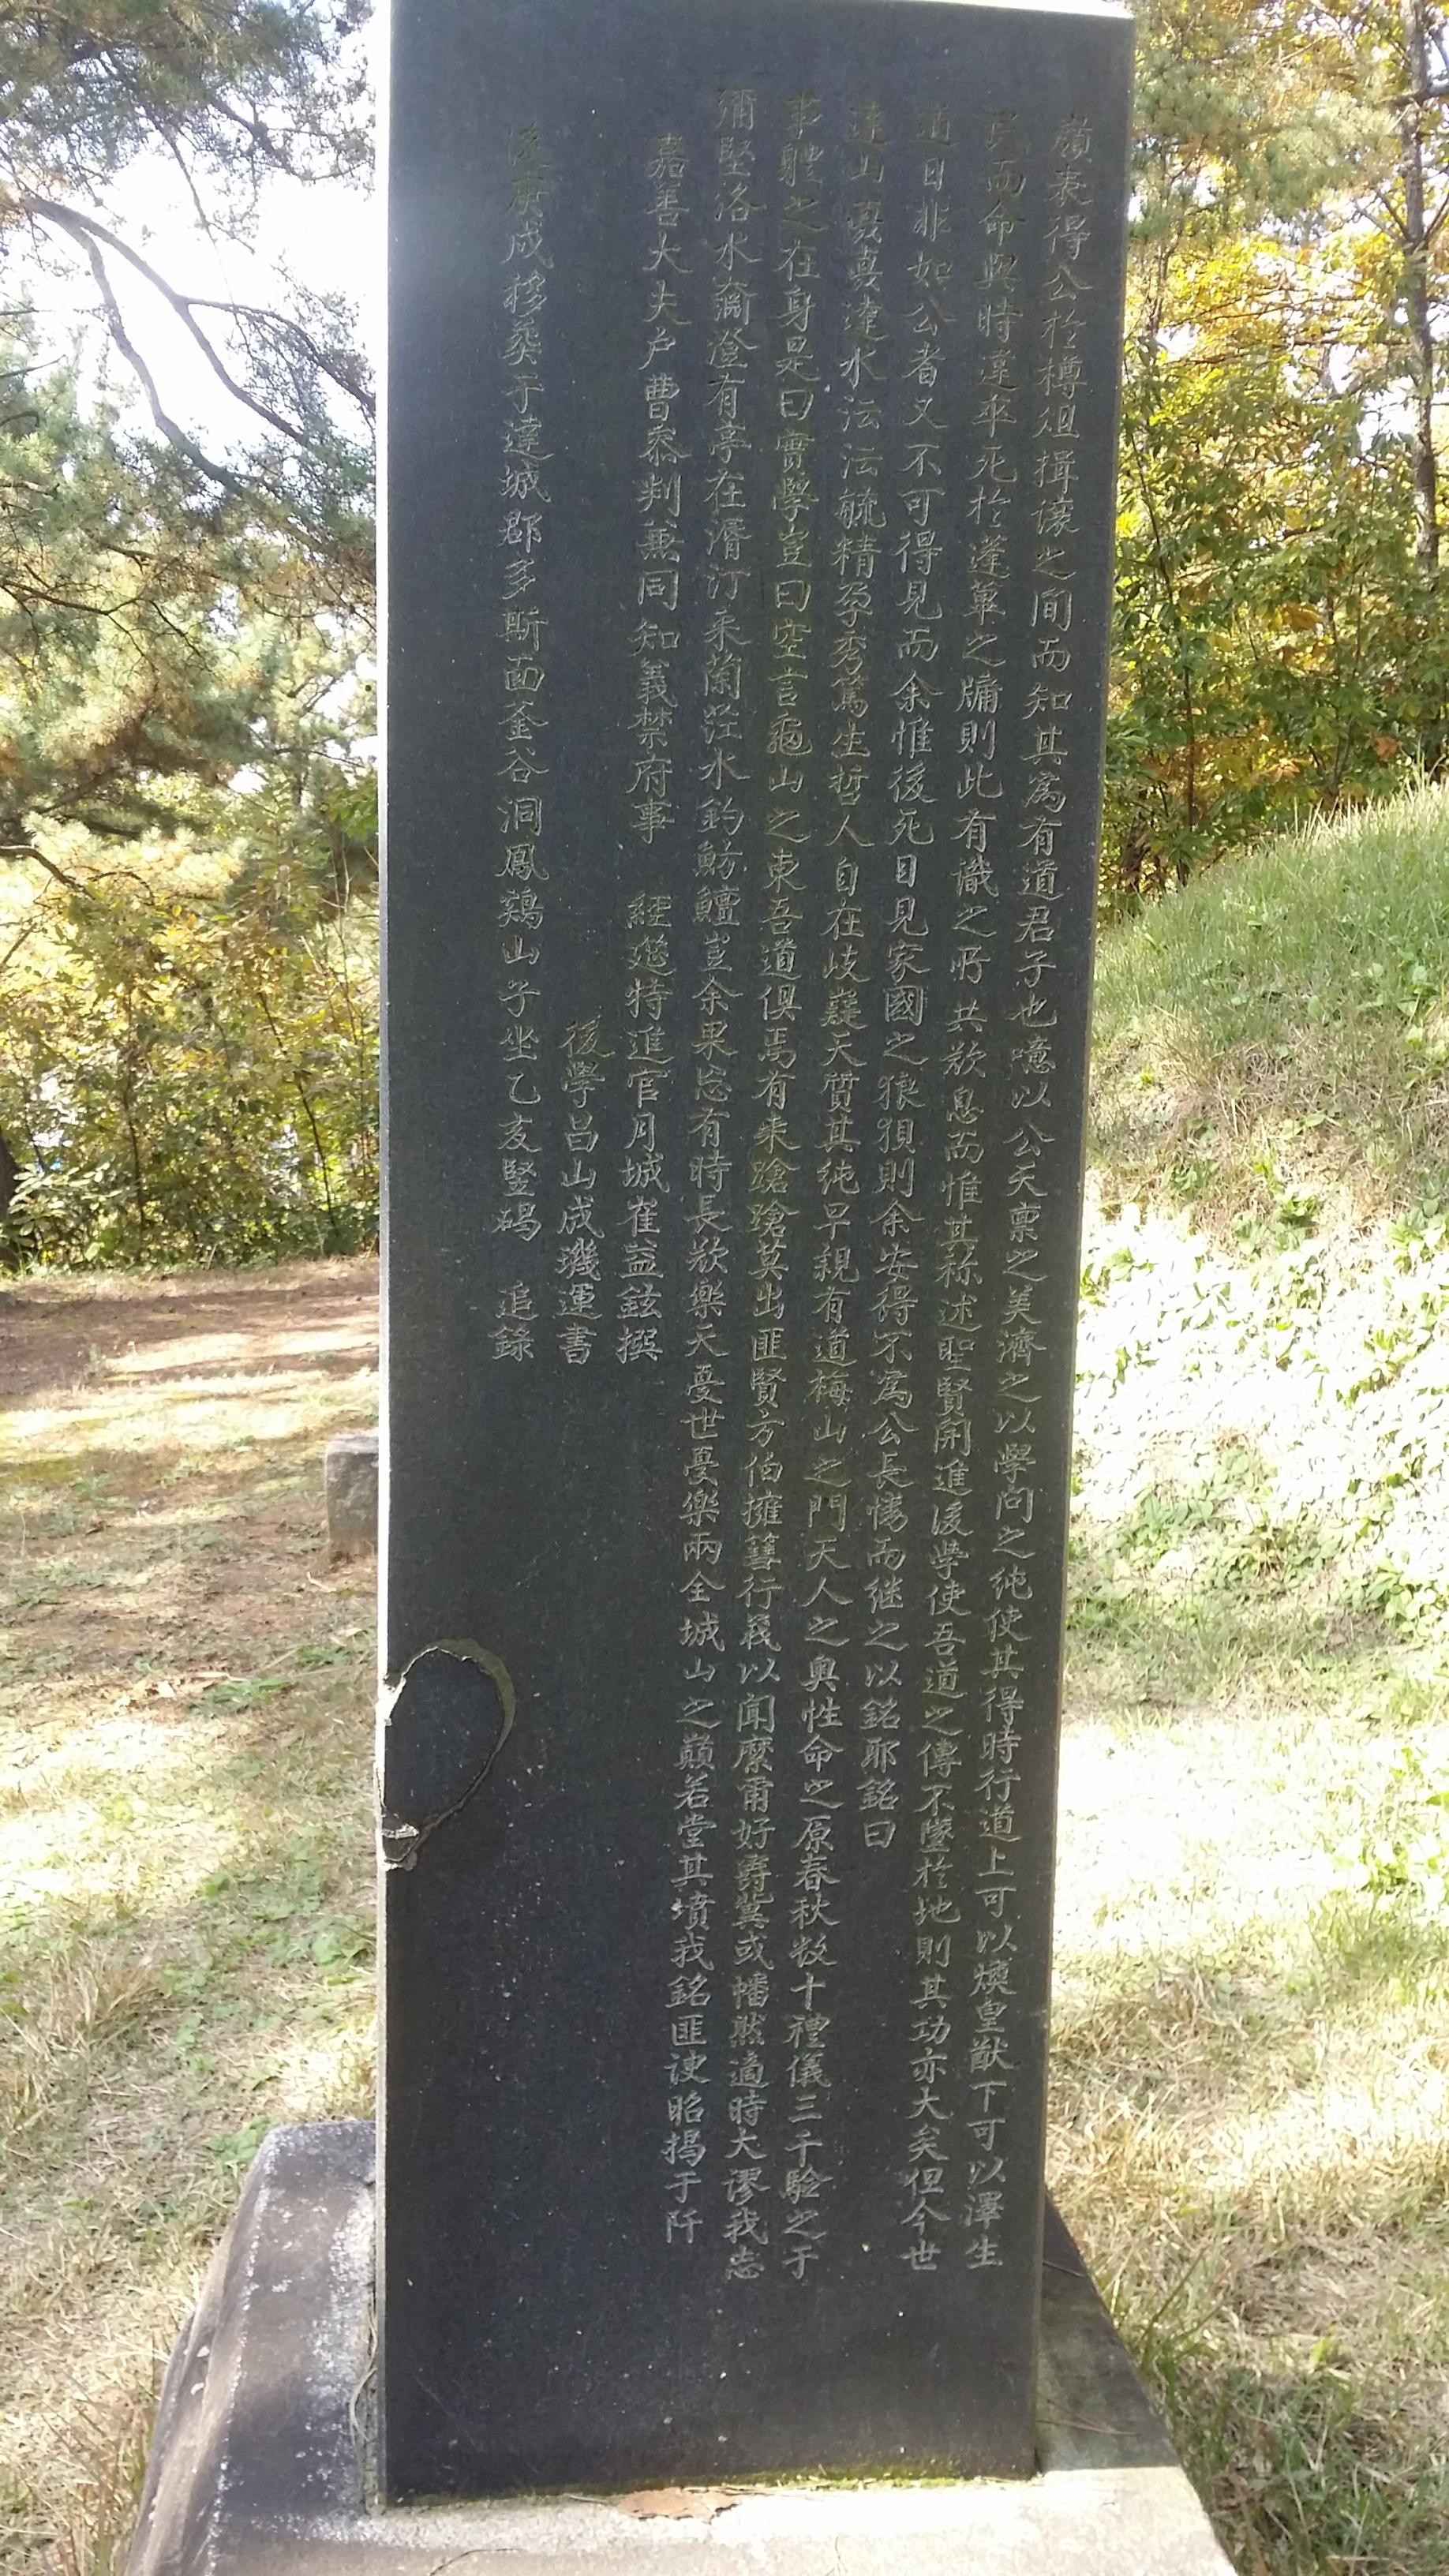 嶺表得公於樽俎揖讓之間而知其爲有道君子也噫以公天稟之美濟之以學問之純使其得時行道上可以煥皇猷下可以澤生
民而命與時違卒死於蓬蓽之牖則此有識之所共欷息而惟其称述聖賢開進後學使吾道之傳不墜於地則其功亦大矣但今世
道日非如公者又不可得見而余惟後死目見家國之狼狽則余安得不爲公長愾而継之以銘耶銘曰
達山嶷嶷達水沄沄毓精孕秀篤生哲人自在岐嶷天質其純早親有道梅山之門天人之奧性命之原春秋数十禮儀三千驗之于
事軆之在身是曰實學豈曰空言龜山之東吾道俱焉有來蹌蹌莫出匪賢方伯擁篲行義以聞縻甯好爵冀或幡然適時大謬我志
彌堅洛水奫澄有亭在湑汀采蘭茳水釣魴鱣豈余果忘有時長欷樂天憂世憂樂兩全城山之巔若堂其墳我銘匪諛昭揭于阡
嘉善大夫户曹叅判兼同知義禁府事 經筵特進官月城崔益鉉撰
後學昌山成璣運書
後庚戍移葬于達城郡多斯面釜谷洞鳳鷄山子坐乙友竪碣 追錄